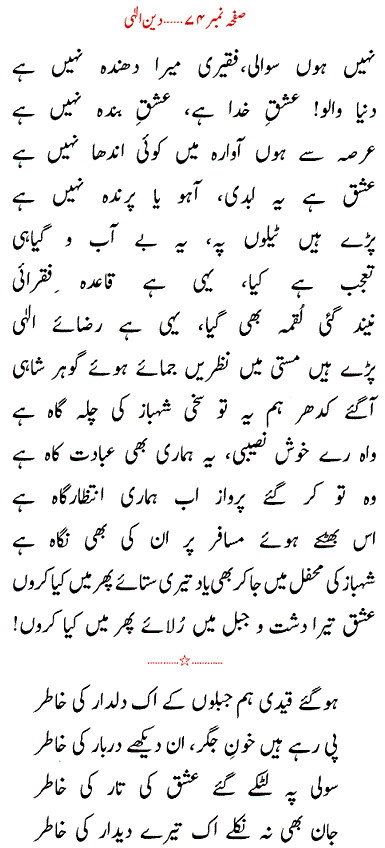 صفحہ نمبر ۷۴......دین الٰہی
نہیں ہوں سوالی،فقیری میرا دھندہ نہیں ہے
دنیا والو! عشقِ خدا ہے، عشقِ بندہ نہیں ہے
عرصہ سے ہوں آوارہ میں کوئی اندھا نہیں ہے
عشق ہے یہ لبدی، آہو یا پرندہ نہیں ہے
پڑے ہیں ٹیلوں پہ، یہ بے آب و گیاہی
تعجب ہے کیا، یہی ہے قاعدہ ِفقرائی
نیند گئی لُقمہ بھی گیا، یہی ہے رضائے الٰہی
پڑے ہیں مستی میں نظریں جمائے ہوئے گوہر شاہی
آگئے کدھر ہم یہ تو سخی شہباز کی چلہ گاہ ہے
واہ رے خوش نصیبی، یہ ہماری بھی عبادت کاہ ہے
وہ تو کر گئے پرواز اب ہماری انتظارگاہ ہے
اس بھٹکے ہوئے مسافر پر ان کی بھی نگاہ ہے
شہباز کی محفل میں جا کر بھی یاد تیری ستائے پھر میں کیا کروں
عشق تیرا دشت و جبل میں رُلائے پھر میں کیا کروں!
...........☆...........
ہوگئے قیدی ہم جبلوں کے اک دلدار کی خاطر
پی رہے ہیں خونِ جگر، ان دیکھے دربار کی خاطر
سولی پہ لٹکے گئے عشق کی تار کی خاطر
جان بھی نہ نکلے اک تیرے دیدار کی خاطر